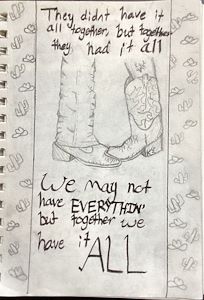 They didnt have it
all together, but together
they had it all
We may not
have EVERYTHIN'
but together we
have it
ALL